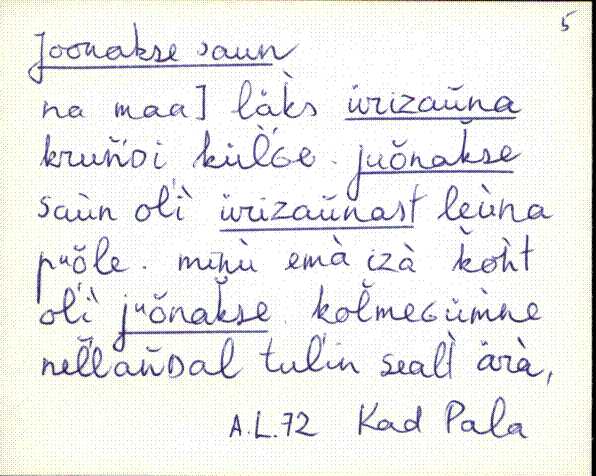 5
Joonakse saun
na maa] läks ürizaŭna
kruǹDi külGe. juŏnakse
saùn olì ürizaŭnast leùna
pᵘŏle. minù emà izà koht
olì jᵘŏnakse. kolmeGümne
nellaǹDal tulin sealt ärà,
A.L.72 Kad Pala